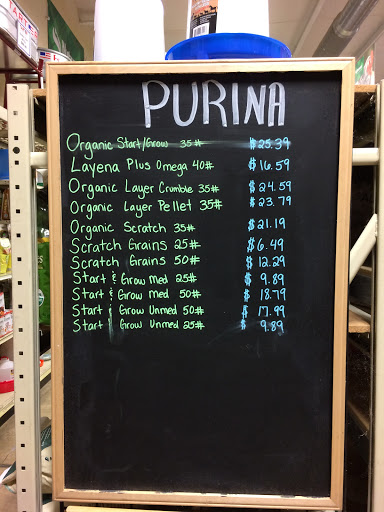 PURINA
Organic Start/Grow 35# $25.39
Layena Plus Omega 40# $16.59
Organic Layer Crumble 35# $24.59
Organic Layer Pellet 35# $23.79
Organic Scratch 35# $21.19
Scratch Grains 25# $6.49
Scratch Grains 50# $12.29
Start & Grow Med 25# $9.89
Start & Grow Med 50# $18.79
Start & Grow Unmed 50# $17.99
Start & Grow Unmed 25# $9.89